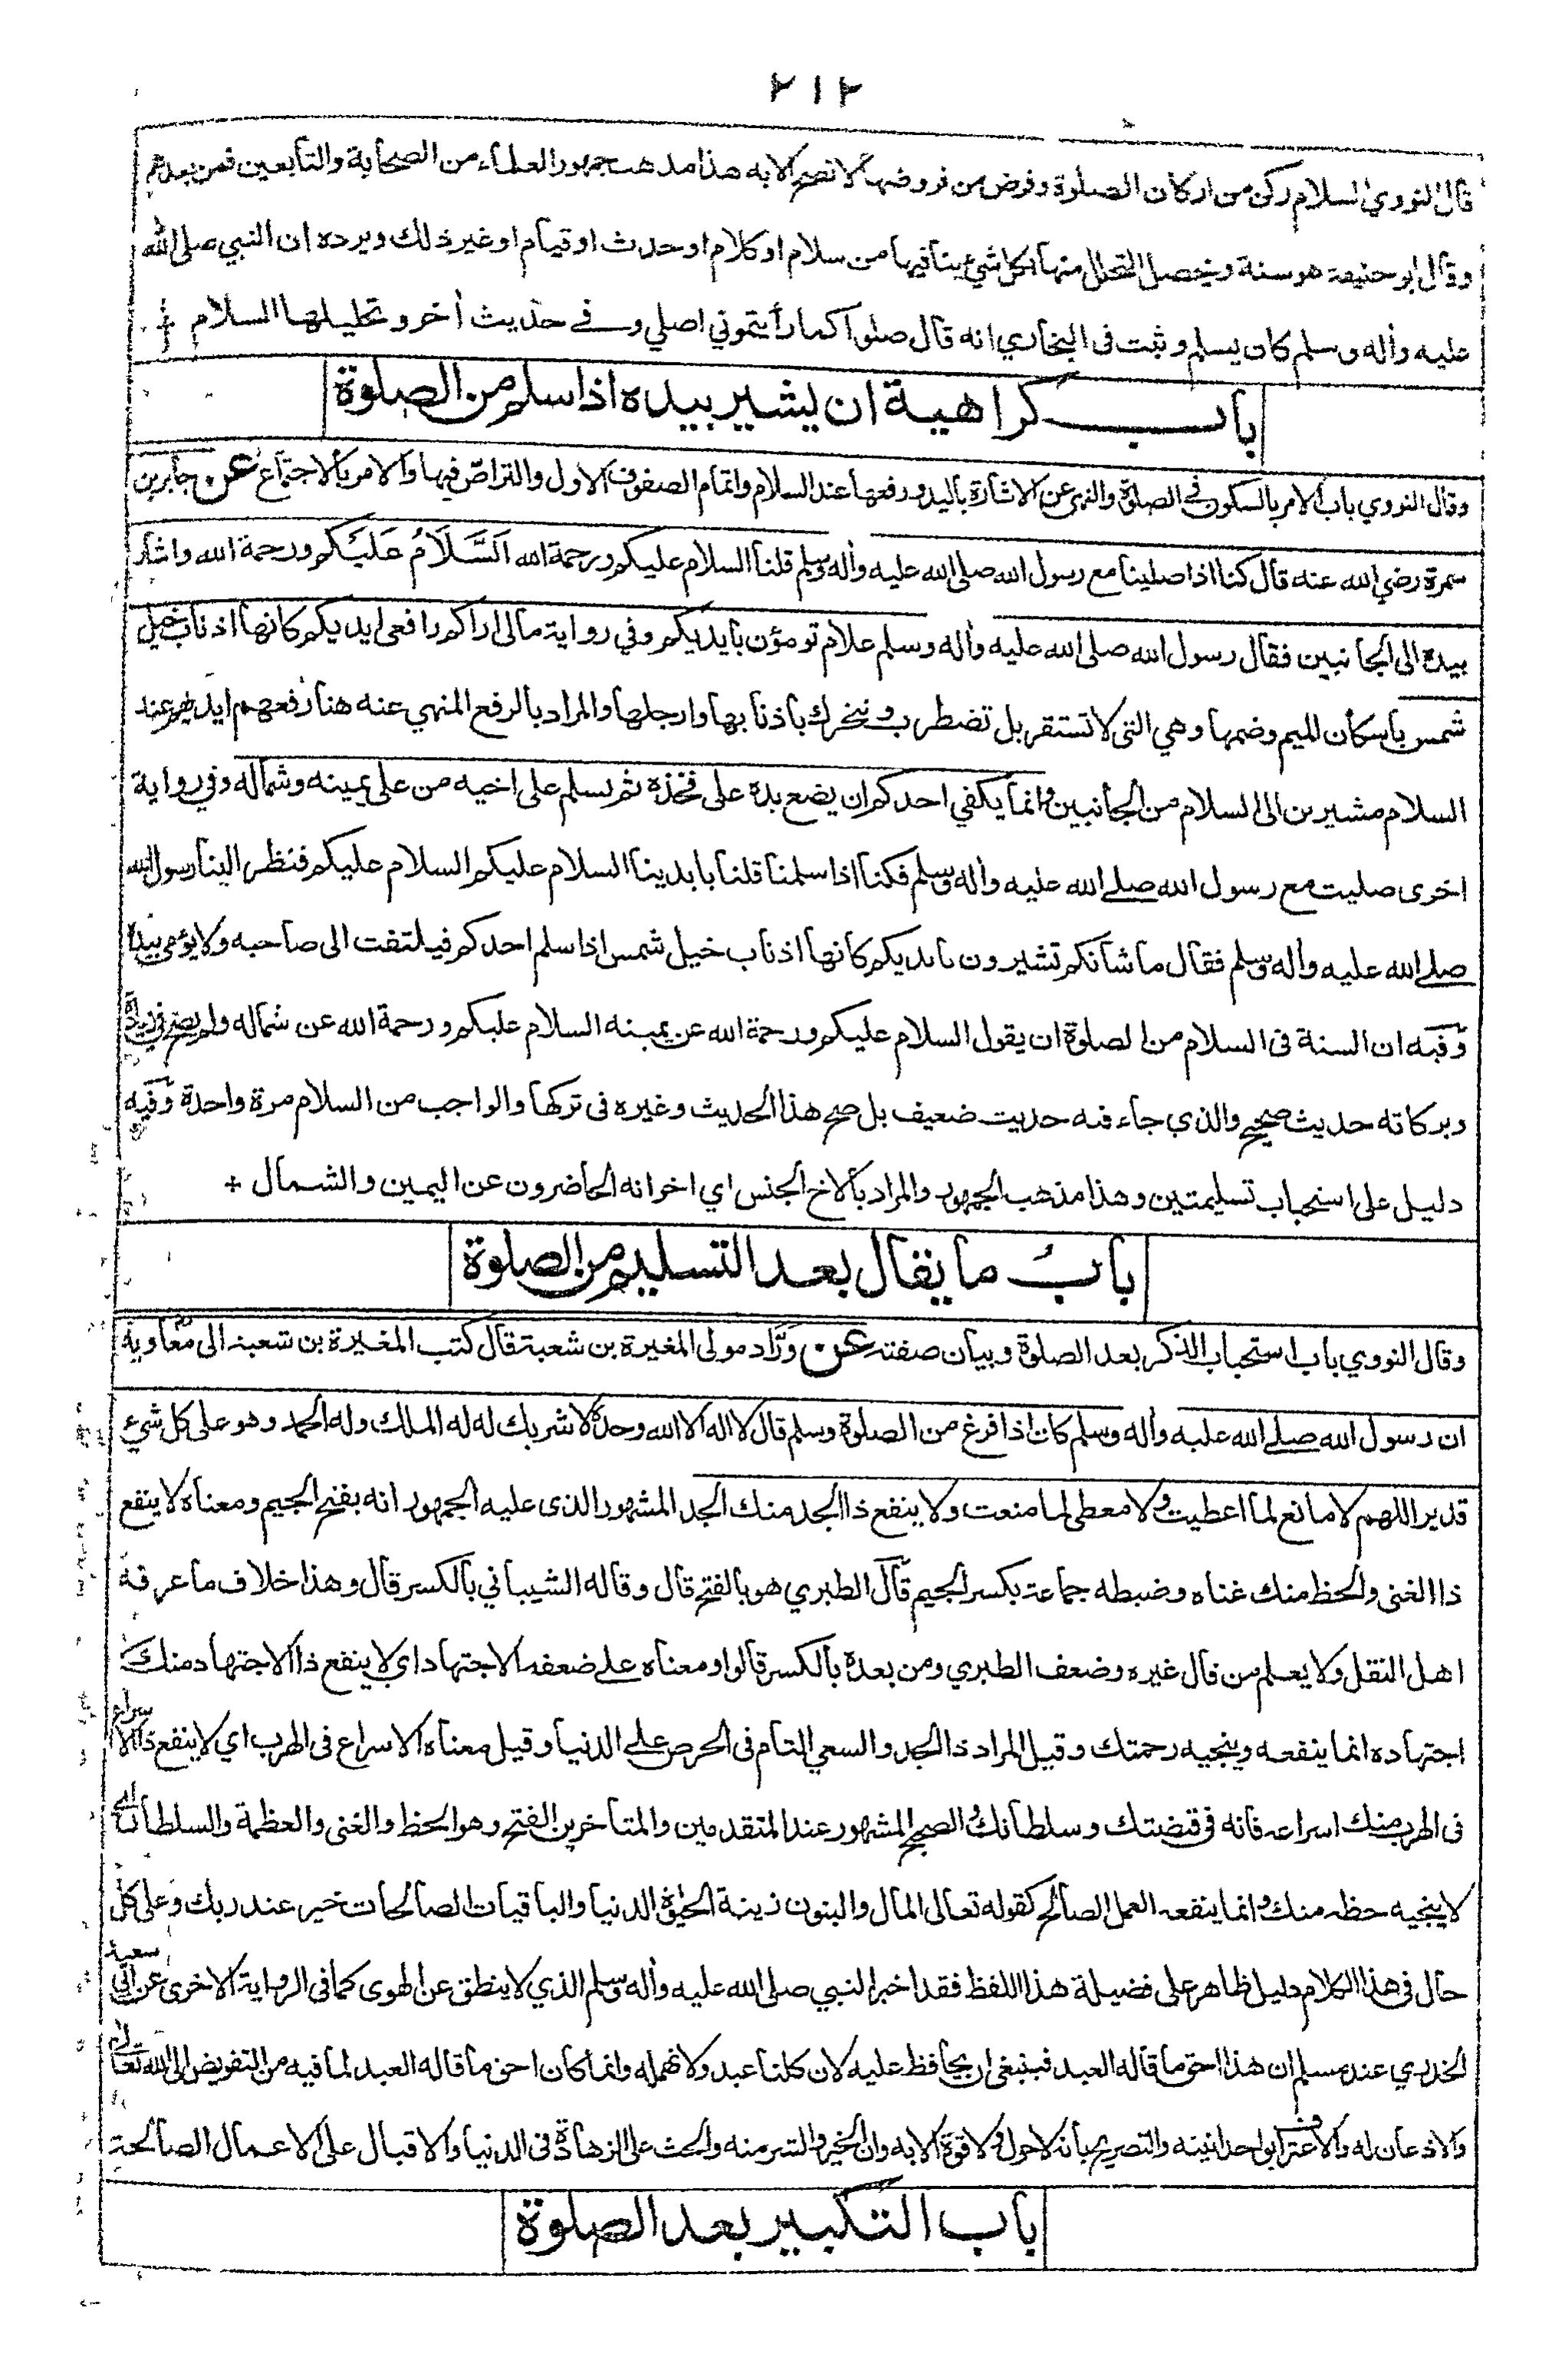 ٢١٢
قال النووي السلام ركن من اركان الصلوة وفرض من فروضها لا تصح الا به هذا مذهب جمهور العلماء من الصحابة والتابعين فمن بعدهم
وقال ابو حنيفة هو سنة ويحصل التحلل منها بكل شيء ينافيها من سلام او كلام او حدث او قيام او غير ذلك ويرده ان النبي صلى الله
عليه وأله وسلم كان يسلم وثبت في البخاري انه قال صلوا كما رأيتموني اصلي وفي حديث أخر وتحليلها السلام +
باب كراهية ان يشير بيده اذا سلم من الصلوة
وقال النووي باب الامر بالسكون في الصلوة والنهي عن الاشارة باليد ورفعها عند السلام واتمام الصفوف الاول والتراص فيها والامر بالاجتماع عن جابر بن
سمرة رضي الله عنه قال كنا اذا صلينا مع رسول الله صلى الله عليه وأله وسلم قلنا السلام عليكم ورحمة الله اَلسَّلَامُ عَلَيْكم ورحمة الله واشار
بيده الى الجانبين فقال رسول الله صلى الله عليه وأله وسلم علام تومؤن بايديكم وفي رواية مالي اراكم رافعي ايديكم كانها اذناب خيل
شمس باسكان الميم وضمها وهي التي لا تستقر بل تضطرب وتتحرك باذنابها وارجلها والمراد بالرفع المنهي عنه هنا رفعهم ايديهم عند
السلام مشيرين الى السلام من الجانبين وانما يكفي احدكم ان يضع يده على فخذه ثم يسلم على اخيه من على يمينه وشماله وفي رواية
اخرى صليت مع رسول الله صلى الله عليه وأله وسلم فكنا اذا سلمنا قلنا بايدينا السلام عليكم السلام عليكم فنظر الينا رسول الله
صلى الله عليه وأله وسلم فقال ما شانكم تشيرون بايديكم كانها اذناب خيل شمس اذا سلم احدكم فيلتفت الى صاحبه ولا يؤمي بيده
وفيه ان السنة في السلام من الصلوة ان يقول السلام عليكم ورحمة الله عن يمينه السلام عليكم ورحمة الله عن شماله ولم يصح في زيادة
وبركاته حديث صحيح والذي جاء فيه حديث ضعيف بل صح هذا الحديث وغيره في تركها والواجب من السلام مرة واحدة وفيه
دليل على استحباب تسليمتين وهذا مذهب الجمهور والمراد بالاخ الجنس اي اخوانه الحاضرون عن اليمين والشمال +
بابُ ما يقال بعد التسليم من الصلوة
وقال النووي باب استحباب الذكر بعد الصلوة وبيان صفته عن ورَّاد مولى المغيرة بن شعبة قال كتب المغيرة بن شعبة الى معاوية
ان رسول الله صلى الله عليه وأله وسلم كان اذا فرغ من الصلوة وسلم قال لا اله الا الله وحده لا شريك له له الملك وله الحمد وهو على كل شيء
قدير اللهم لا مانع لما اعطيت ولا معطي لما منعت ولا ينفع ذا الجد منك الجد المشهور الذي عليه الجمهور انه بفتح الجيم ومعناه لا ينفع
ذا الغنى والحظ منك غناه وضبطه جماعة بكسر الجيم قال الطبري هو بالفتح قال وقاله الشيباني بالكسر قال وهذا خلاف ما عرفه
اهل النقل ولا يعلم من قال غيره وضعف الطبري ومن بعده بالكسر قالوا ومعناه على ضعفه الاجتهاد اي لا ينفع ذا الاجتهاد منك
اجتهاده انما ينفعه وينجيه رحمتك وقيل المراد ذا الجد والسعي التام في الحرص على الدنيا وقيل معناه الاسراع في الهرب اي لا ينفع ذا الاسراع
في الهرب منك اسراعه فانه في قبضتك وسلطانك والصحيح المشهور عند المتقدمين والمتأخرين الفتح وهو الحظ والغنى والعظمة والسلطان اي
لا ينجيه حظه منك وانما ينفعه العمل الصالح كقوله تعالى المال والبنون زينة الحيوة الدنيا والباقيات الصالحات خير عند ربك وعلى كل
حال في هذا الكلام دليل ظاهر على فضيلة هذا اللفظ فقد اخبر النبي صلى الله عليه وأله وسلم الذي لا ينطق عن الهوى كما في الرواية الاخرى عن ابي سعيد
الخدري عند مسلم ان هذا احق ما قاله العبد فينبغي ان يحافظ عليه لان كلنا عبد ولا نهمله وانما كان احق ما قاله العبد لما فيه من التفويض الى الله تعالى
والاذعان له والاعتراف بوحدانيته والتصريح بانه لا حول ولا قوة الا به وان الخير والشر منه والحث على الزهادة في الدنيا والاقبال على الاعمال الصالحة
باب التكبير بعد الصلوة